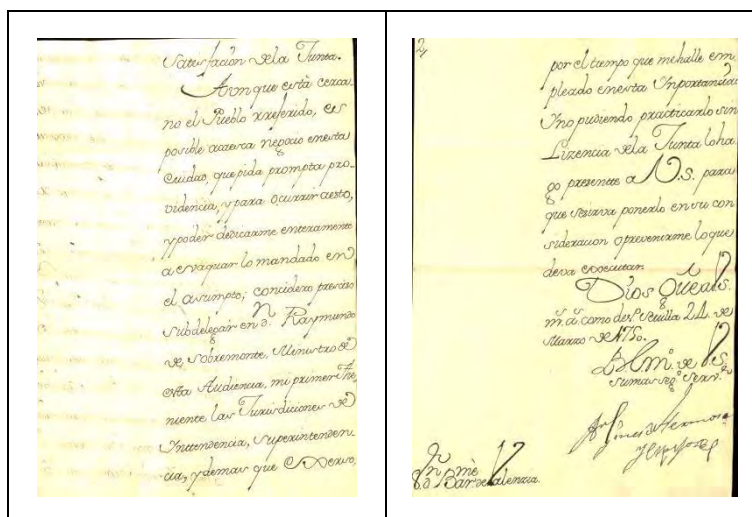 Satisfaciòn dela Junta.
Aunque està cerca-
no el Pueblo rreferido, es
posible acaesca negocio enesta
Ciudad, que pida prompta pro-
videncia, y para ocurrir aesto,
y poder dedicarme enteramente
a evaquar lo mandado en
el asumpto; concidero presiso
subdelegar en Dn. Raymundo
de Sobremonte, Ministro de
esta Audiencia, mi primer The-
niente las Jurisdiciones de
Intendencia, Superintenden-
cia, y demas que exerso,
2,
por el tiempo que mehalle em-
pleado enesta Inportancia:
Yno pudiendo practicarlo sin
Lizencia dela Junta loha-
go presente a V.S. para
que sesirva ponerlo en su con-
sideracion o prevenirme loque
deva executar.
Dios Gue. a V.S.
ms. as. como deso. Sevilla 24 de
Marzo de 1750.
BLm. de V.S.
su mas sego. servor.